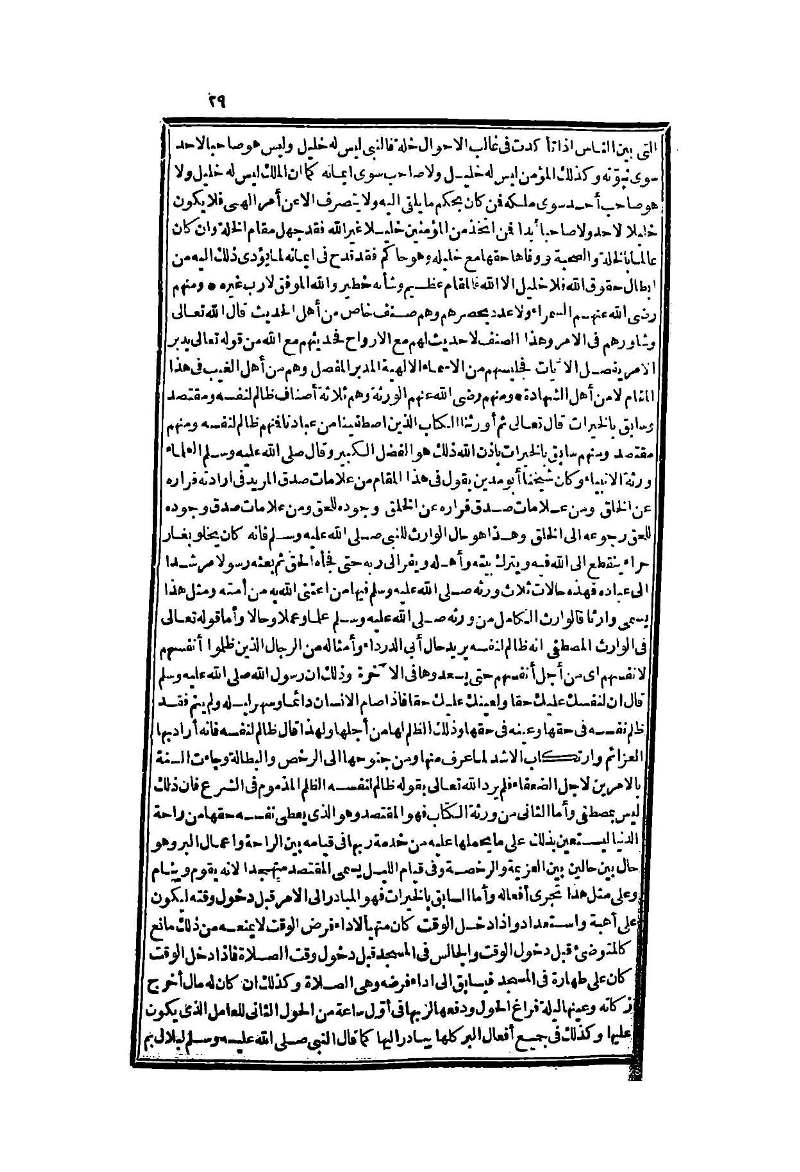 ٢٩
التى بين الناس اذا تأكدت فى غالب الاحوال خلة فالنبى ليس له خليل وليس هو صاحبا لاحد
سوى نبوّته وكذلك المؤمن ليس له خليل ولا صاحب سوى ايمانه كما ان الملك ليس له خليل ولا
هو صاحب أحد سوى ملكه فمن كان بحكم ما يلقى اليه ولا يتصرف الا عن أمر الهى فلا يكون
خليلا لاحد ولا صاحبا أبدا فمن اتخذ من المؤمنين خليلا غير الله فقد جهل مقام الخلة وان كان
عالما بالخلة والصحبة ووفاها حقها مع خليله وهو حاكم فقد قدح فى ايمانه لما يؤدى ذلك اليه من
ابطال حقوق الله فلا خليل الا الله فالمقام عظيم وشأنه خطير والله الموفق لا رب غيره * ومنهم
رضى الله عنهم السمراء ولا عدد يحصرهم وهم صنف خاص من أهل الحديث قال الله تعالى
وشاورهم فى الامر وهذا الصنف لا حديث لهم مع الارواح فحديثهم مع الله من قوله تعالى يدبر
الامر يفصل الآيات فجليسهم من الاسماء الالهية المدبر المفصل وهم من أهل الغيب فى هذا
المقام لا من أهل الشهادة * ومنهم رضى الله عنهم الورثة وهم ثلاثة أصناف ظالم لنفسه ومقتصد
وسابق بالخيرات قال تعالى ثم أورثنا الكتاب الذين اصطفينا من عبادنا فمنهم ظالم لنفسه ومنهم
مقتصد ومنهم سابق بالخيرات باذن الله ذلك هو الفضل الكبير وقال صلى الله عليه وسلم العلماء
ورثة الانبياء وكان شيخنا أبو مدين يقول فى هذا المقام من علامات صدق المريد فى ارادته فراره
عن الخلق ومن علامات صدق فراره عن الخلق وجوده للحق ومن علامات صدق وجوده
للحق رجوعه الى الخلق وهذا هو حال الوارث للنبى صلى الله عليه وسلم فانه كان يخلو بغار
حراء ينقطع الى الله فيه ويترك بيته وأهله ويفر الى ربه حتى فجأه الحق ثم بعثه رسولا مرشدا
الى عباده فهذه حالات ثلاث ورثه صلى الله عليه وسلم فيها من اعتنى الله به من أمته ومثل هذا
يسمى وارثا فالوارث الكامل من ورثه صلى الله عليه وسلم علما وعملا وحالا وأما قوله تعالى
فى الوارث المصطفى انه ظالم لنفسه يريد حال أبى الدرداء وأمثاله من الرجال الذين ظلموا أنفسهم
لانفسهم اى من أجل أنفسهم حتى يسعدوها فى الآخرة وذلك ان رسول الله صلى الله عليه وسلم
قال ان لنفسك عليك حقا ولعينك عليك حقا فاذا صام الانسان دائما وسهر ليله ولم ينم فقد
ظلم نفسه فى حقها وعينه فى حقها وذلك الظلم لها من أجلها ولهذا قال ظالم لنفسه فانه أراد بها
العزائم وارتكاب الاشد لما عرف منها ومن جنوحها الى الرخص والبطالة وجاءت السنة
بالامرين لاجل الضعفاء فلم يرد الله تعالى بقوله ظالم لنفسه الظلم المذموم فى الشرع فان ذلك
ليس بمصطفى وأما الثانى من ورثة الكتاب فهو المقتصد وهو الذى يعطى نفسه حقها من راحة
الدنيا ليستعين بذلك على ما يحملها عليه من خدمة ربها فى قيامه بين الراحة واعمال البر وهو
حال بين حالين بين العزيمة والرخصة وفى قيام الليل يسمى المقتصد متهجدا لانه يقوم وينام
وعلى مثل هذا تجرى أفعاله وأما السابق بالخيرات فهو المبادر الى الامر قبل دخول وقته ليكون
على أهبة واستعداد واذا دخل الوقت كان متهيأ لاداء فرض الوقت لا يمنعه من ذلك مانع
كالمتوضئ قبل دخول الوقت والجالس فى المسجد قبل دخول وقت الصلاة فاذا دخل الوقت
كان على طهارة فى المسجد فيسابق الى اداء فرضه وهى الصلاة وكذلك ان كان له مال أخرج
زكاته وعينها ليلة فراغ الحول ودفعها لربها فى أول ساعة من الحول الثانى للعامل الذى يكون
عليها وكذلك فى جميع أفعال البر كلها يبادر اليها كما قال النبى صلى الله عليه وسلم لبلال بم